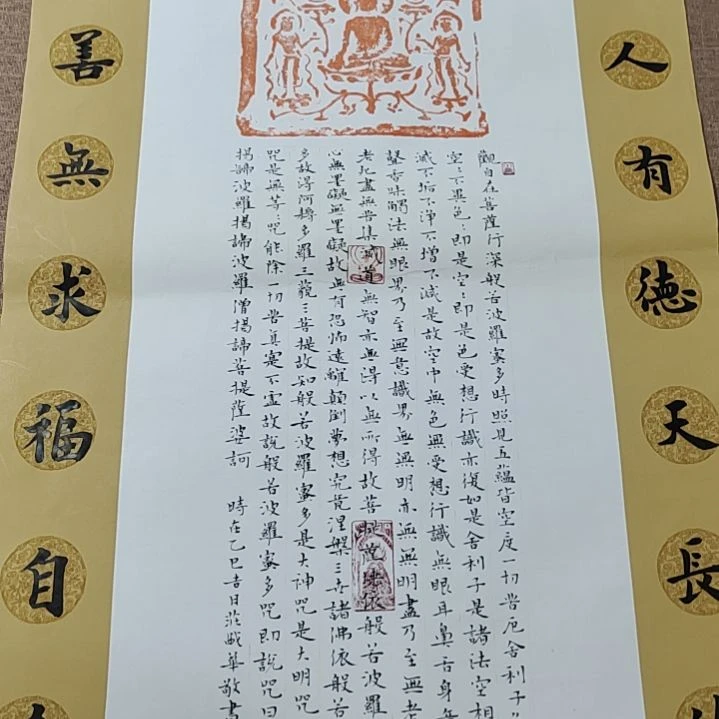 人有德天長
觀自在菩薩行深般若波羅蜜多時照見五蘊皆空度一切苦厄舍利子
空〻不異色〻即是空〻即是色受想行識亦復如是舍利子是諸法空相
滅不垢不淨不增不減是故空中無色無受想行識無眼耳鼻舌身無
聲香味觸法無眼界乃至無意識界無無明亦無無明盡乃至無老
老死盡無苦集滅道無智亦無得以無所得故菩提薩埵依般若波羅
心無罣礙無罣礙故無有恐怖遠離顛倒夢想究竟涅槃三世諸佛依般若
多故得阿耨多羅三藐三菩提故知般若波羅蜜多是大神咒是大明咒
咒是無等〻咒能除一切苦真實不虛故說般若波羅蜜多咒即說咒曰
揭諦波羅揭諦波羅僧揭諦菩提薩婆訶
時在乙巳吉日莊華敬書
善無求福自